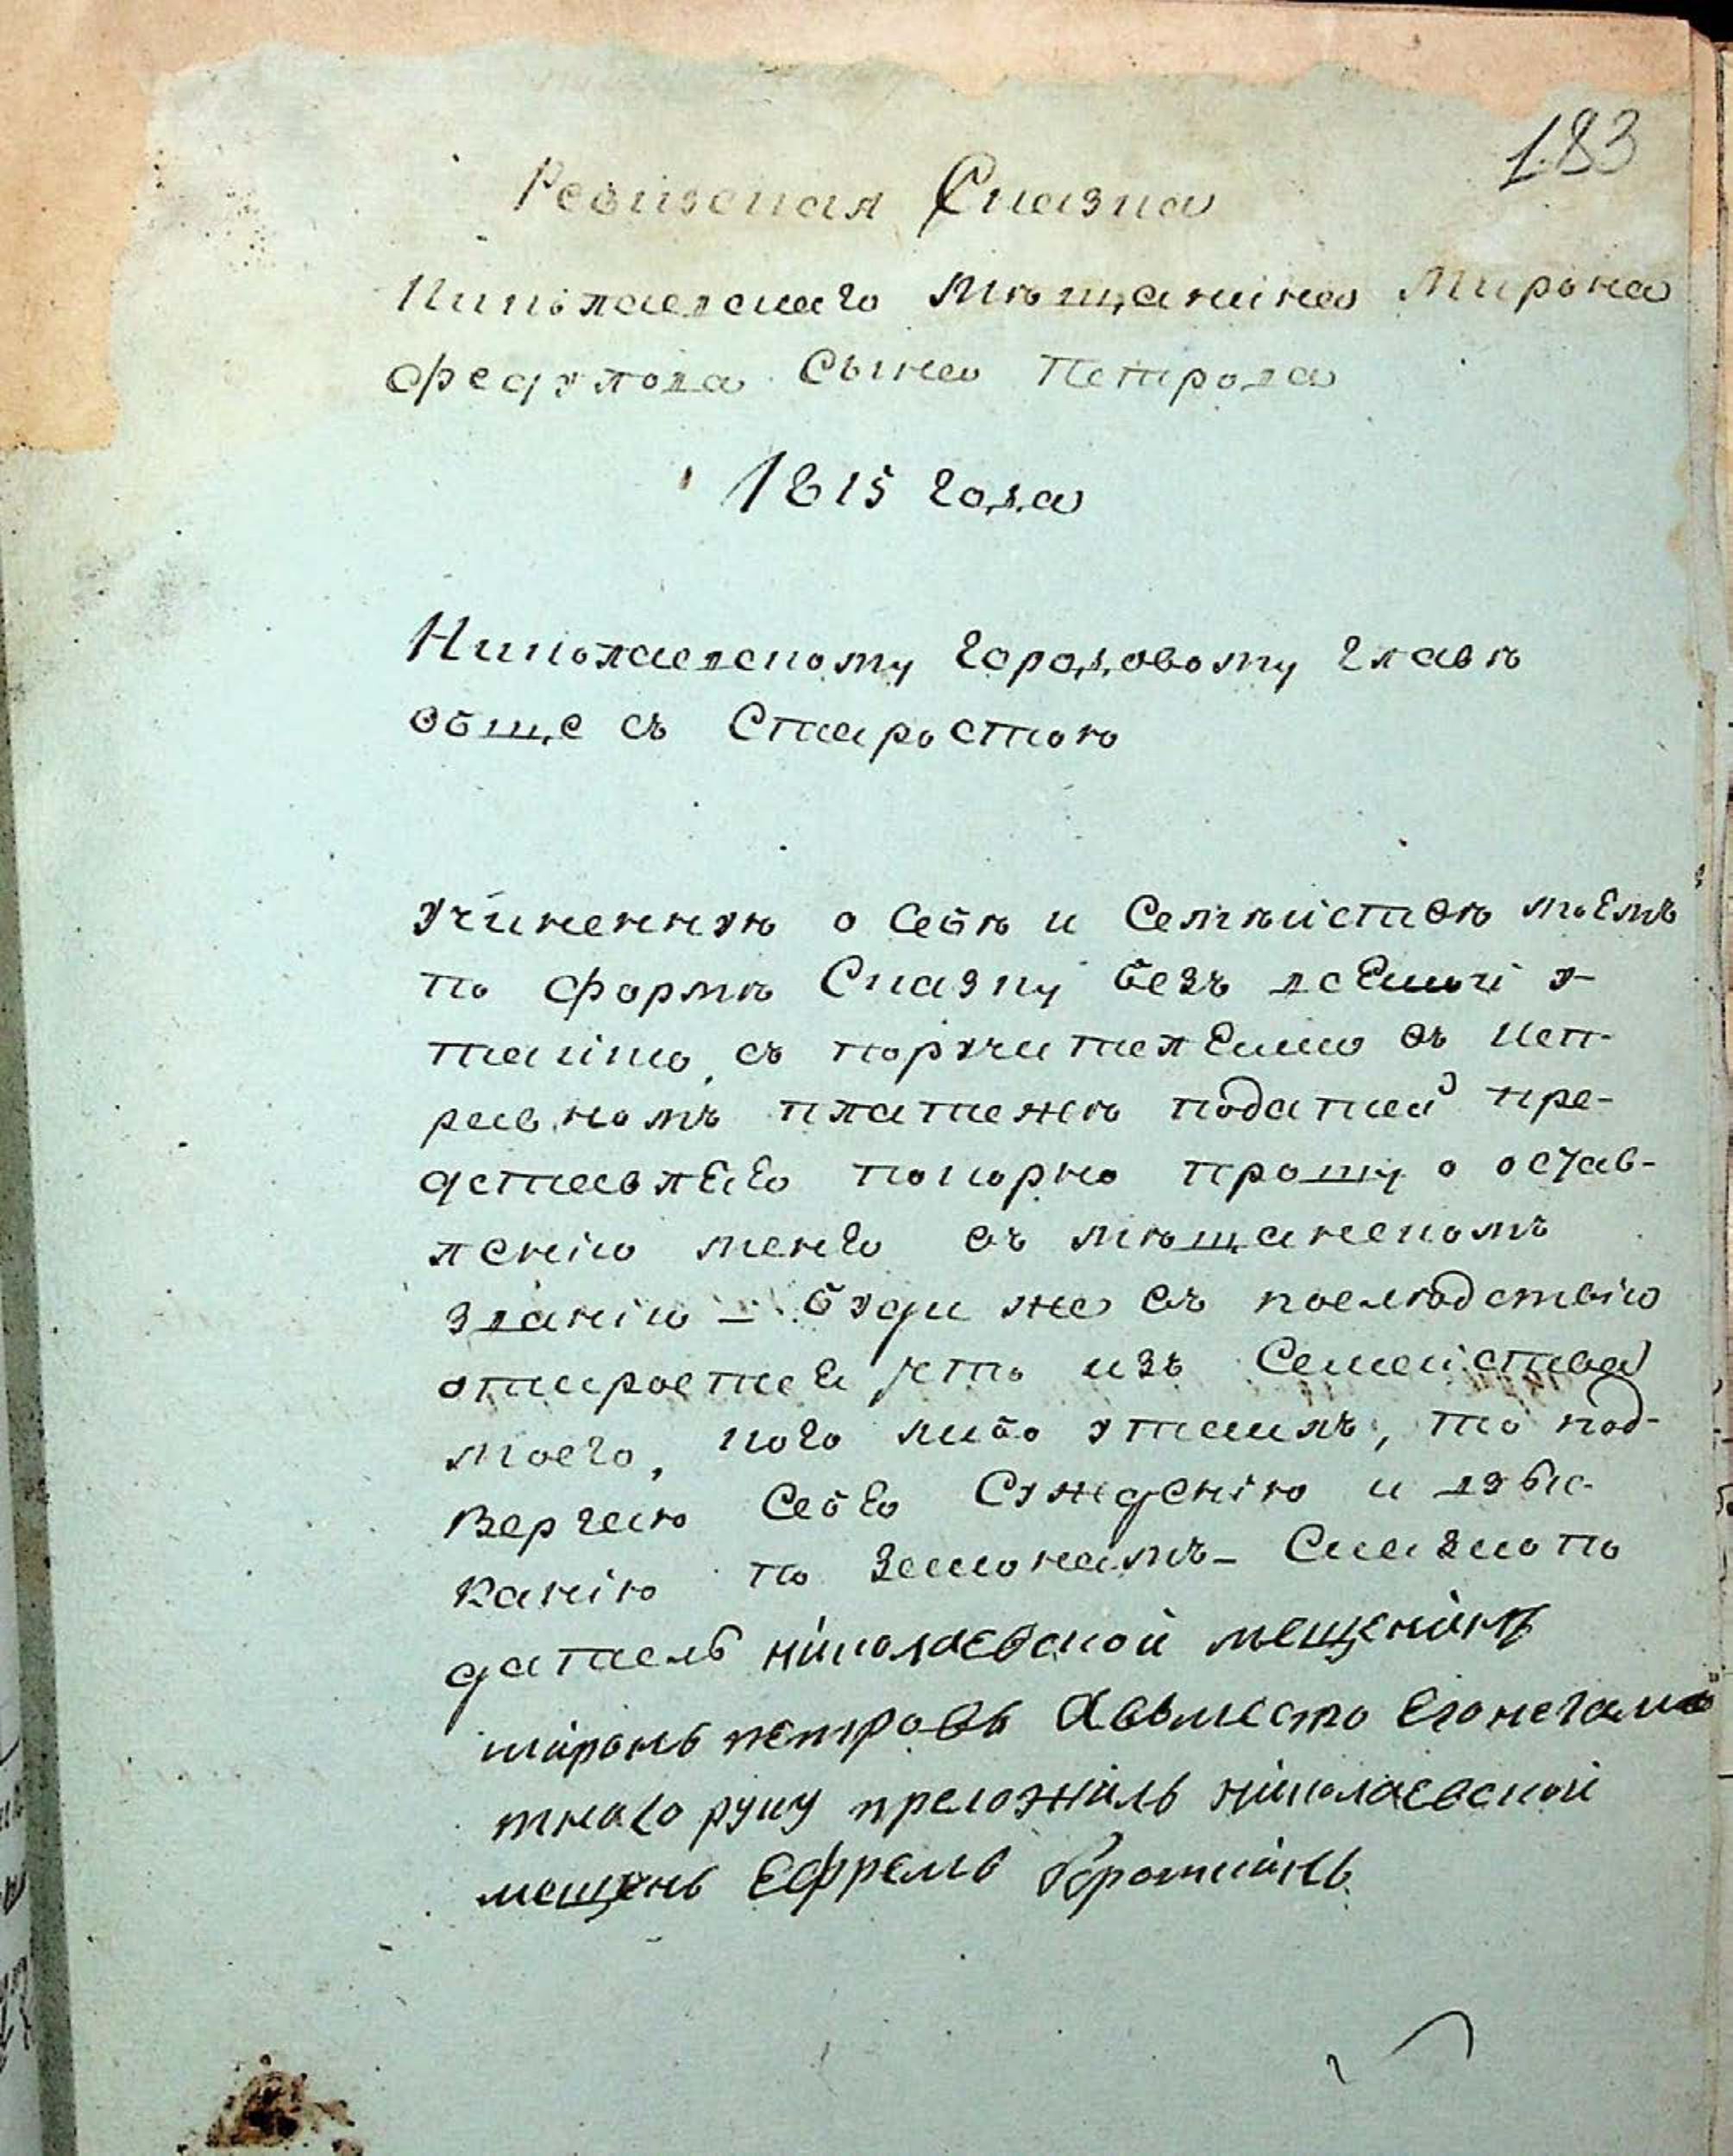 183
Ревизская Сказка
Николаевскаго мѣщанина Мирона
Федулова Сына Петрова
1815 года
Николаевскому городовому главѣ
обще съ Старостою
учиненную о себѣ и Семѣйствѣ моемъ
по формѣ Сказку безъ всякой у-
таики, съ поручителями въ исп-
равномъ платежѣ податей пре-
дставляю покорно прошу о остав-
лении меня въ мѣщанскомъ
звании – буди же въ послѣдствіи
откроется что изъ Семейства
моего, кого либо утаилъ, то под-
вергаю себя Сужденію и взыс-
канію по законамъ – Сказкопо
датель николаевской мещенинъ
миронъ петровъ Авъместо Егонеграмо
тнаго руку преложилъ николаевской
мещенъ Ефремъ